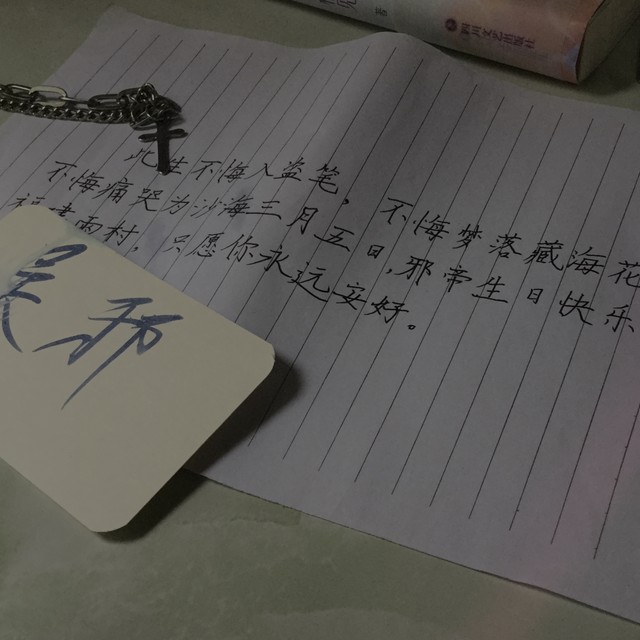 四川文艺出版社
著
此生不悔入盗笔，不悔梦落藏海花
不悔痛哭为沙海三月五日，邪帝生日快乐
雨村，只愿你永远安好。
吴邪